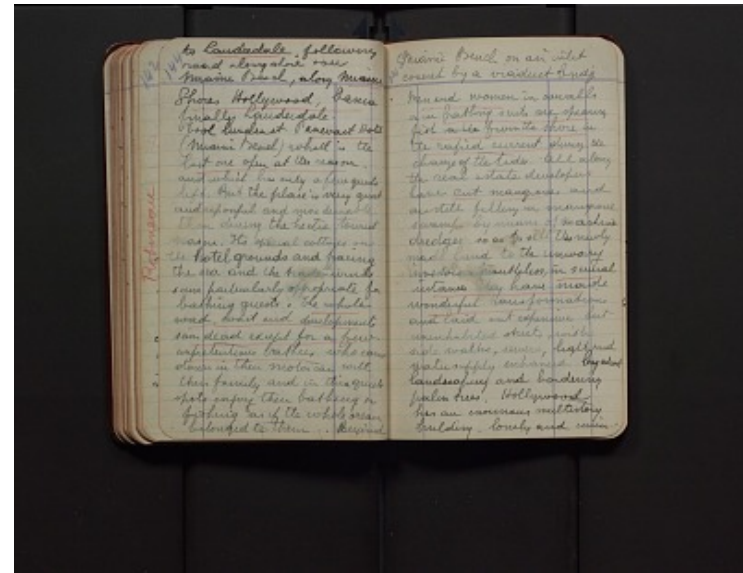 142
144
to Lauderdale following
road along
Miami Beach, along Miami
Shores Hollywood, Dania
finally Lauderdale.
(Miami Beach) which is the
last one open at the season
and which has only a few guests
left. But the place is very quiet
and and more desirable
than during the hectic tourist
season. Its special cottages on
the Hotel grounds and facing
the sea and the
seem particularly appropriate for
bathing guests. The whole
road, and developments
seem dead except for a few
unpretentious bathers, who come
down in their motorcar with
their family and in this quiet
spots enjoy their bathing or
fishing as if the whole ocean
belonged to them. Beyond
Robinson
Miami Beach on an inlet
covered by a viaduct bridge
Men and women in overalls
or in bathing suits are spearing
fish in the shore in
the rapid current during the
change of the tide. All along
the real estate developers
have cut mangrove and
are still filling in mangrove
swamps by means of
dredges so as to sell the newly
made land to the unwary
investor. Doubtless, in several
instances they have made
wonderful transformations
and laid out expensive but
uninhabited streets, with
side walks, sewers, light and
water supply enhanced by
landscaping and bordering
palm trees. Hollywood
has an enormous multistory
building, lonely and